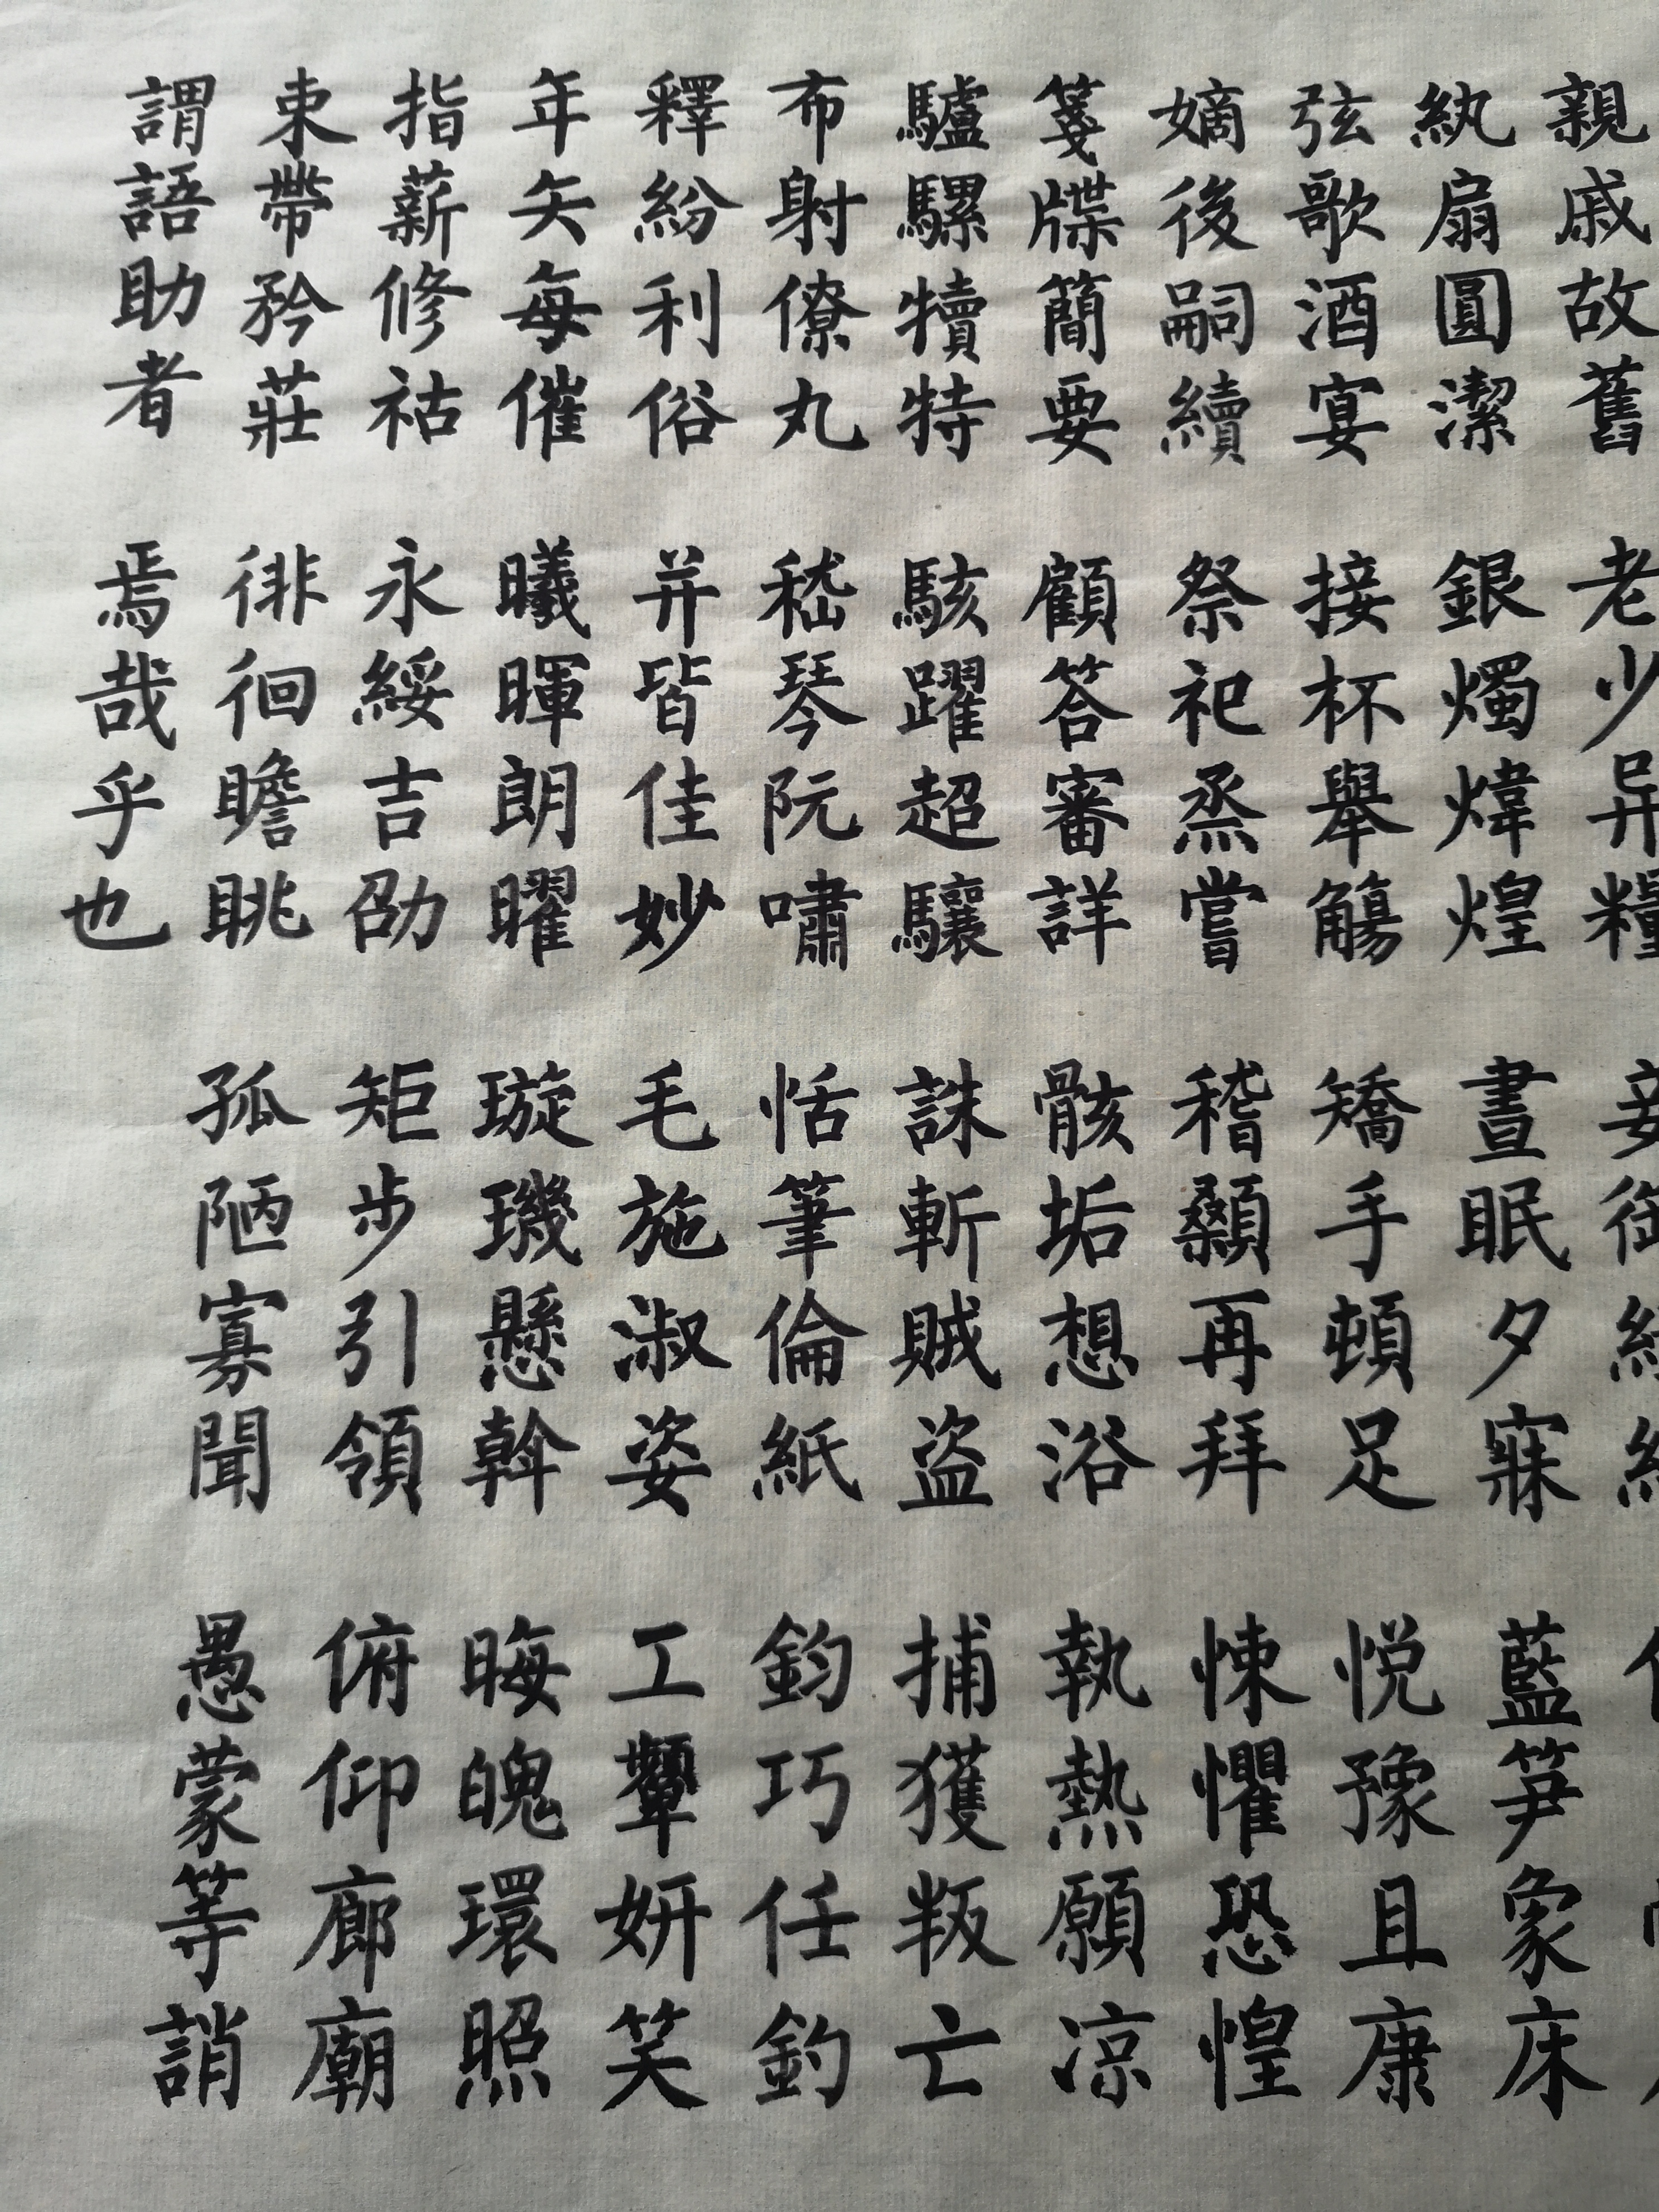 親戚故舊 老少异糧 妾御
紈扇圓潔 銀燭煒煌 晝眠夕寐 藍笋象床
弦歌酒宴 接杯舉觴 矯手頓足 悦豫且康
嫡後嗣續 祭祀烝嘗 稽顙再拜 悚懼恐惶
箋牒簡要 顧答審詳 骸垢想浴 執熱願凉
驢騾犢特 駭躍超驤 誅斬賊盗 捕獲叛亡
布射僚丸 嵇琴阮嘯 恬筆倫紙 鈞巧任釣
釋紛利俗 并皆佳妙 毛施淑姿 工顰妍笑
年矢每催 曦暉朗曜 璇璣懸斡 晦魄環照
指薪修祜 永綏吉劭 矩步引領 俯仰廊廟
束帶矜莊 徘徊瞻眺 孤陋寡聞 愚蒙等誚
謂語助者 焉哉乎也